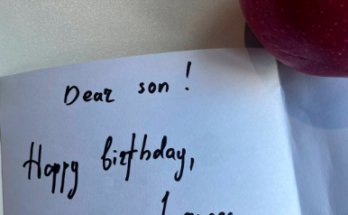 Dear son!
Happy birthday,